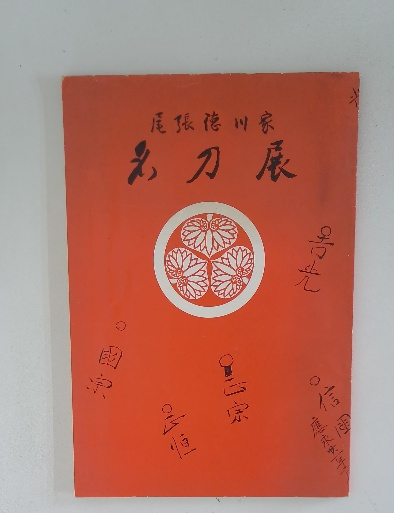 尾張徳川家
名刀展
吉光
國宗
正恒
正宗
信國